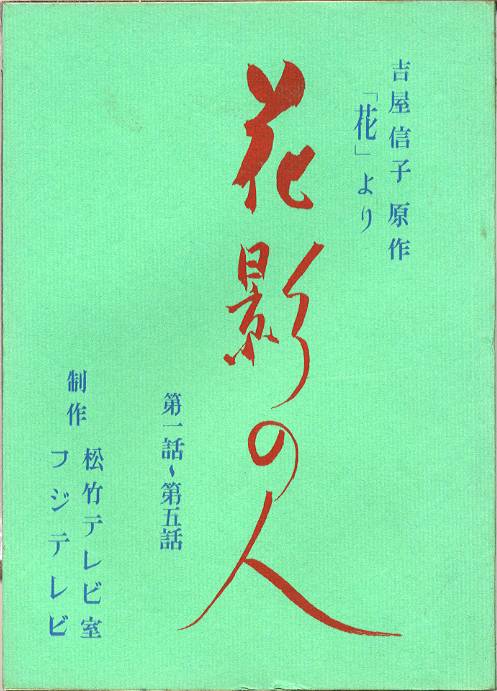 吉屋信子 原作
「花」より
花影の人
第一話〜第五話
制作
松竹テレビ室
フジテレビ